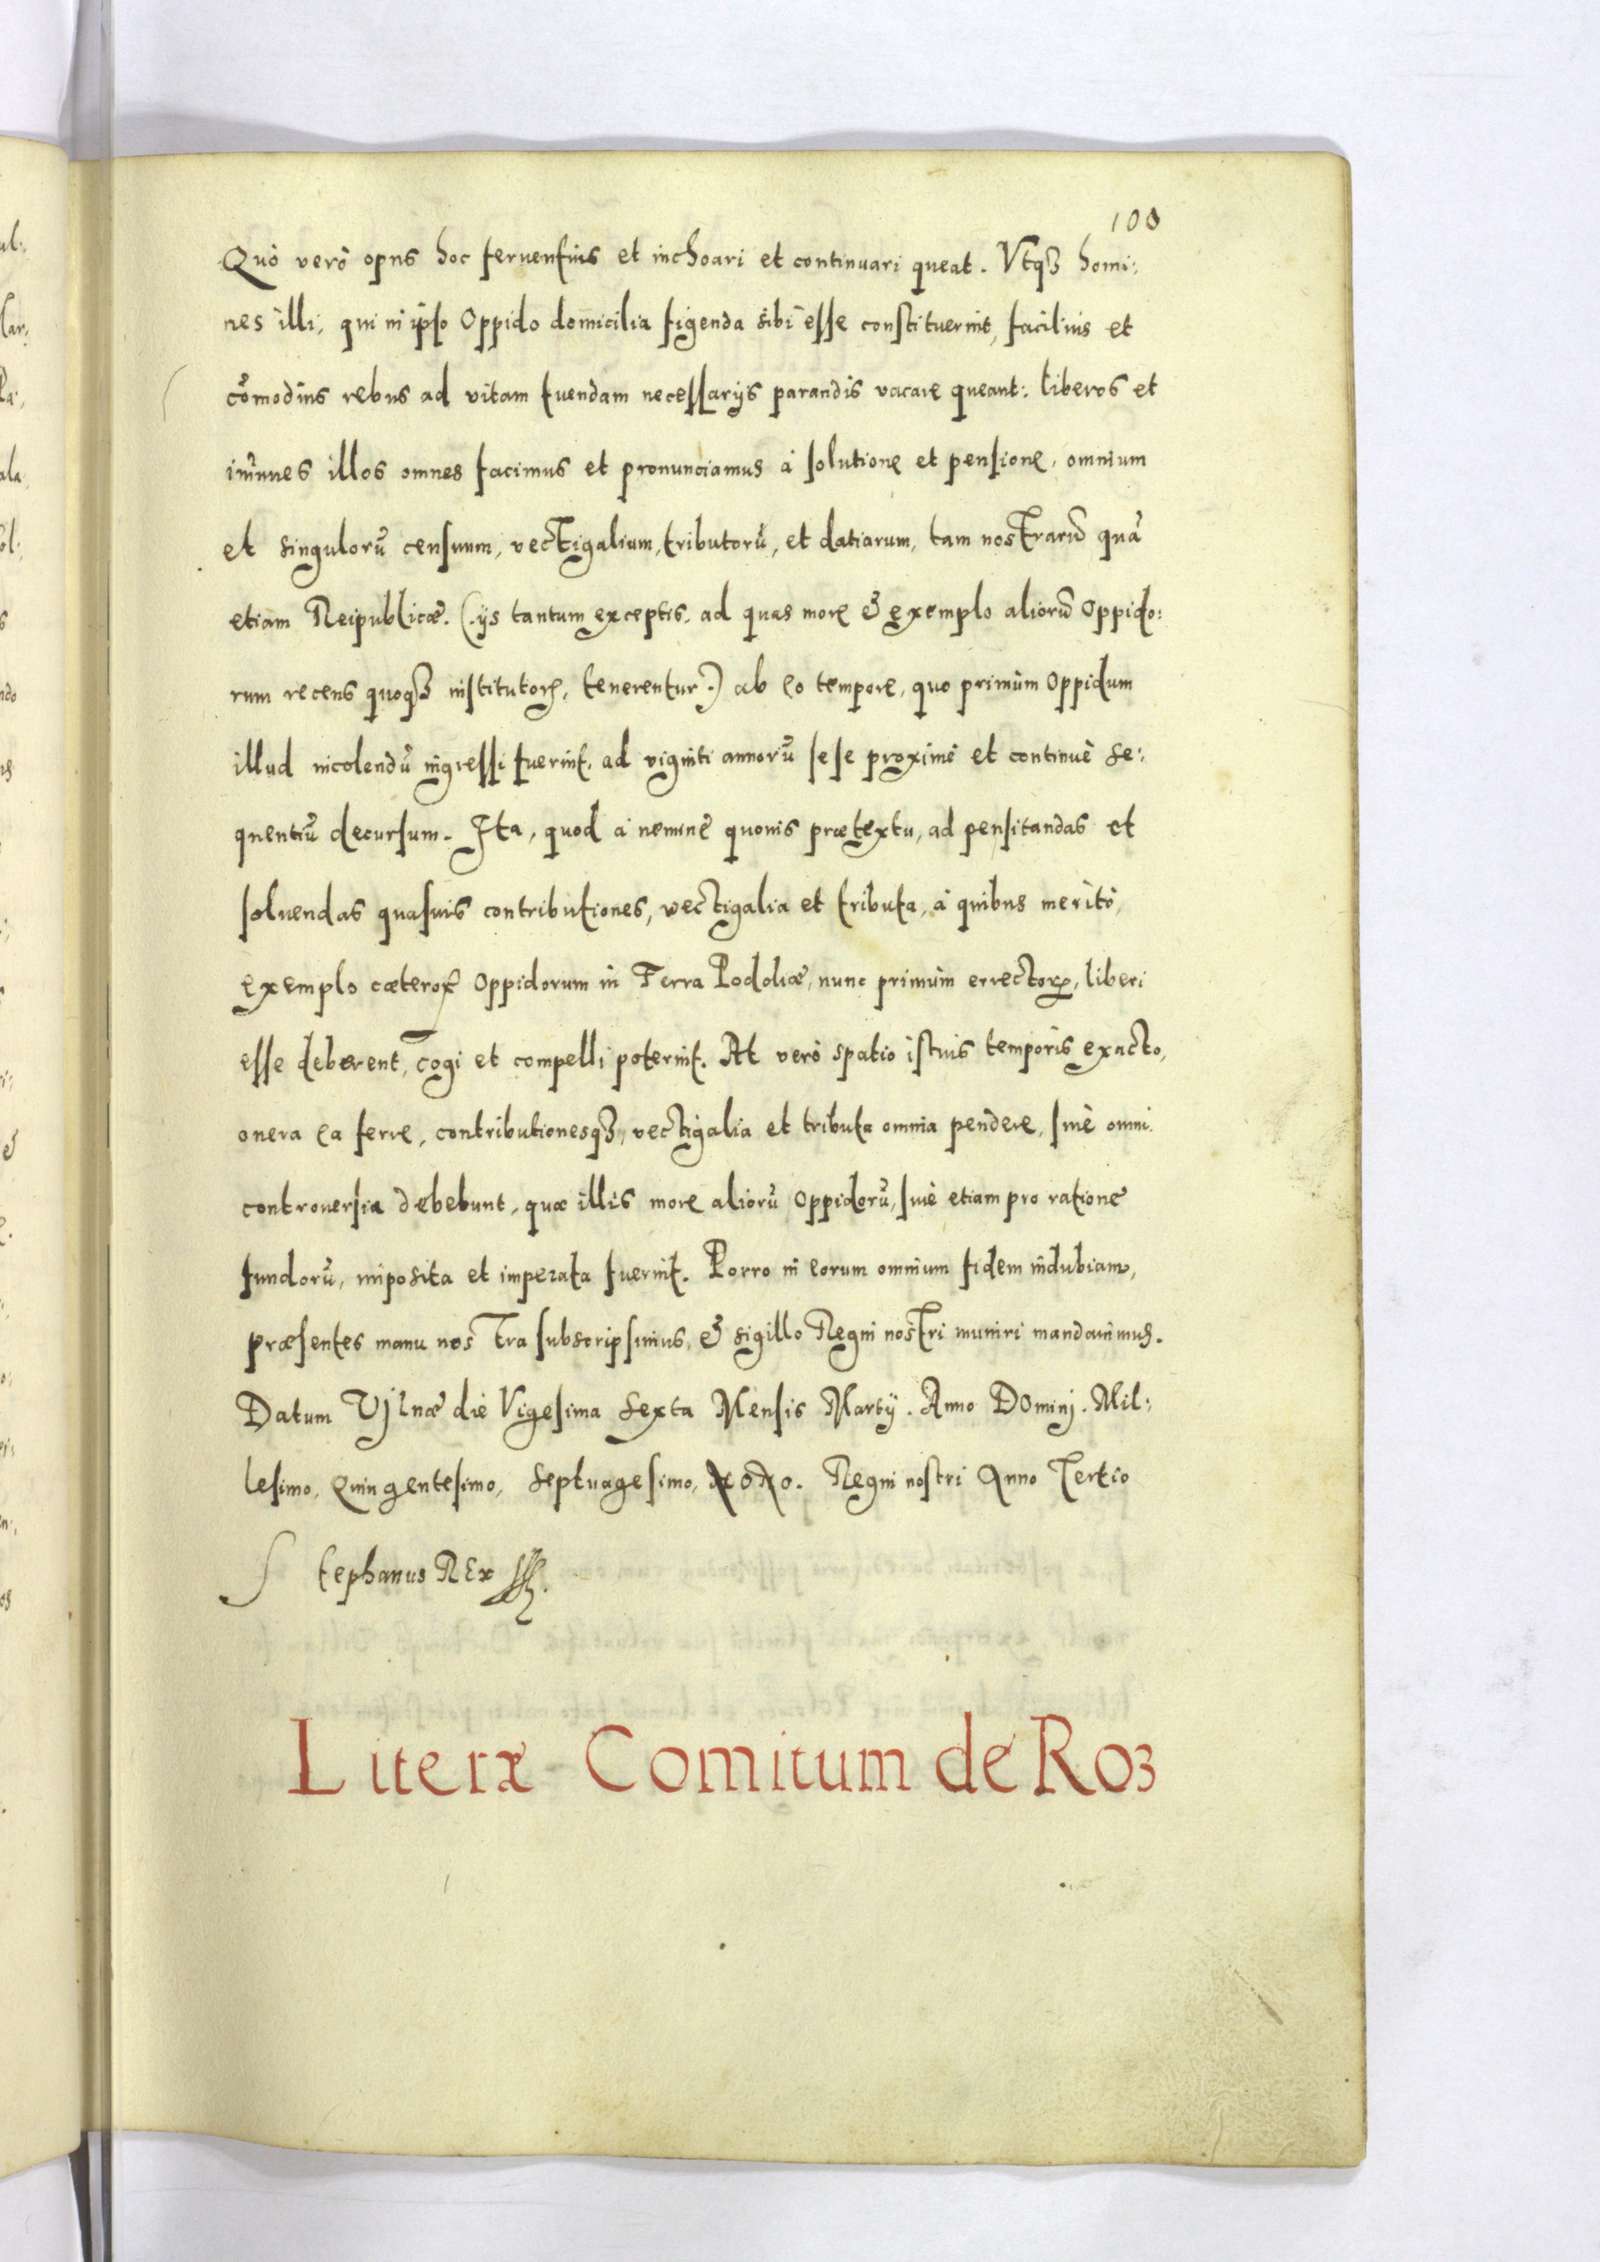 100
Quò verò opus hoc feruentius et inchoari et continuari queat. Vtqꝫ homi:
nes illi, qui in ipso Oppido domicilia figenda sibi esse constituerint, facilius et
cõmodius rebus ad vitam tuendam necessarijs parandis vacare queant: liberos et
im̃unes illos omnes facimus et pronunciamus à solutione et pensione, omnium
et singulorũ censuum, vectigalium, tributorũ, et datiarum, tam nostrarũ quã
etiam Reipublicæ. (.ijs tantum exceptis, ad quas more & exemplo aliorũ Oppido:
rum recens quoqꝫ institutoꝝ, tenerentur.) ab eo tempore, quo primùm Oppidum
illud incolendũ ingressi fuerint, ad viginti annorũ sese proximè et continuè se:
quentiũ decursum. Ita, quod à nemine quouis prætextu, ad pensitandas et
soluendas quasuis contributiones, vectigalia et tributa, à quibus meritò,
exemplo cæteroꝝ Oppidorum in Terra Podoliæ, nunc primùm errectoꝝ, liberi
esse deberent, cogi et compelli poterint. At verò spatio istuis temporis exacto,
onera ea ferre, contributionesqꝫ, vectigalia et tributa omnia pendere, sinè omni
controuersia debebunt, quæ illis more aliorũ Oppidorũ, siuè etiam pro ratione
fundorũ, imposita et imperata fuerint. Porro in eorum omnium fidem indubiam,
præsentes manu nostra subscripsimus, & sigillo Regni nostri muniri mandauimus.
Datum Vjlnæ die Vigesima Sexta Mensis Martij. Anno DOminj. Mil:
lesimo, Quingentesimo, Septuagesimo, NoNo. Regni nostri Anno Tertio
Stephanus REx
Literæ Comitum de Roꝫ